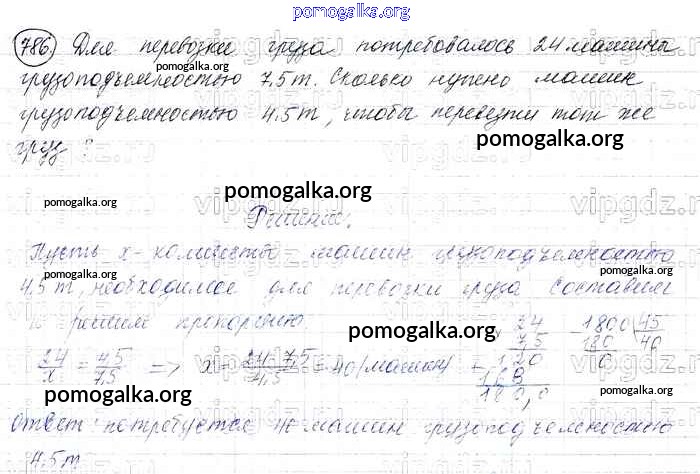 pomogalka.org
786. Для перевозки груза потребовалось 24 машины
грузоподъемностью 7,5 т. Сколько нужно машин
грузоподъемностью 4,5 т, чтобы перевезти тот же
груз?
pomogalka.org
pomogalka.org
pomogalka.org
vipgdz.ru
Решение.
Пусть x - количество машин грузоподъемностью
4,5 т, необходимое для перевозки груза. Составим
pomogalka.org
pomogalka.org
и решим пропорцию.
pomogalka.org
24/x = 4,5/7,5 => x = 24·7,5/4,5 = 40 (машин)
24
7,5
120
168
180,0
1800 45
180 40
0
pomogalka.org
pomogalka.org
Ответ: потребуется 40 машин грузоподъемностью
4,5 т.